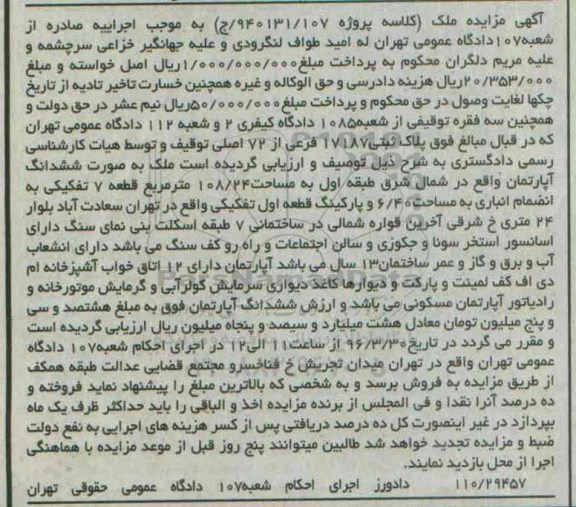 آگهی مزایده ملک (کلاسه پروژه ۹۴۰۱۳۱/۱۰۷/ج) به موجب اجراییه صادره از
شعبه۱۰۷دادگاه عمومی تهران له امید طواف لنگرودی و علیه جهانگیر خزاعی سرچشمه و
علیه مریم دلگران محکوم به پرداخت مبلغ۱/۰۰۰/۰۰۰/۰۰۰ریال اصل خواسته و مبلغ
۲۰/۳۵۳/۰۰۰ریال هزینه دادرسی و حق الوکاله و غیره همچنین خسارت تاخیر تادیه از تاریخ
چکها لغایت وصول در حق محکوم و پرداخت مبلغ۵۰/۰۰۰/۰۰۰ریال نیم عشر در حق دولت و
همچنین سه فقره توقیفی از شعبه۱۰۸۵ دادگاه کیفری ۲ و شعبه ۱۱۲ دادگاه عمومی تهران
که در قبال مبالغ فوق پلاک ثبتی۱۷۱۸۷ فرعی از ۷۲ اصلی توقیف و توسط هیات کارشناسی
رسمی دادگستری به شرح ذیل توصیف و ارزیابی گردیده است ملک به صورت ششدانگ
آپارتمان واقع در شمال شرق طبقه اول به مساحت۱۰۸/۲۴ مترمربع قطعه ۷ تفکیکی به
انضمام انباری به مساحت۶/۴۰ و پارکینگ قطعه اول تفکیکی واقع در تهران سعادت آباد بلوار
۲۴ متری خ شرقی آخرین قواره شمالی در ساختمانی ۷ طبقه اسکلت بنی نمای سنگ دارای
اسانسور استخر سونا و جکوزی و سالن اجتماعات و راه رو کف سنگ می باشد دارای انشعاب
آب و برق و گاز و عمر ساختمان۱۳ سال می باشد آپارتمان دارای ۲ اتاق خواب آشپزخانه ام
دی اف کف لمینت و پارکت و دیوارها کاغذ دیواری سرمایش کولرآبی و گرمایش موتورخانه و
رادیاتور آپارتمان مسکونی می باشد و ارزش ششدانگ آپارتمان فوق به مبلغ هشتصد و سی
و پنج میلیون تومان معادل هشت میلیارد و سیصد و پنجاه میلیون ریال ارزیابی گردیده است
و مقرر می گردد در تاریخ۹۶/۳/۳۰ از ساعت۱۱ الی۱۲ در اجرای احکام شعبه۱۰۷ دادگاه
عمومی تهران واقع در تهران میدان تجریش خ فناخسرو مجتمع قضایی عدالت طبقه همکف
از طریق مزایده به فروش برسد و به شخصی که بالاترین مبلغ را پیشنهاد نماید فروخته و
ده درصد آنرا نقدا و فی المجلس از برنده مزایده اخذ و الباقی را باید حداکثر ظرف یک ماه
بپردازد در غیر اینصورت کل ده درصد دریافتی پس از کسر هزینه های اجرایی به نفع دولت
ضبط و مزایده تجدید خواهد شد طالبین میتوانند پنج روز قبل از موعد مزایده با هماهنگی
اجرا از محل بازدید نمایند.
۱۱۰/۲۹۴۵۷ دادورز اجرای احکام شعبه۱۰۷ دادگاه عمومی حقوقی تهران